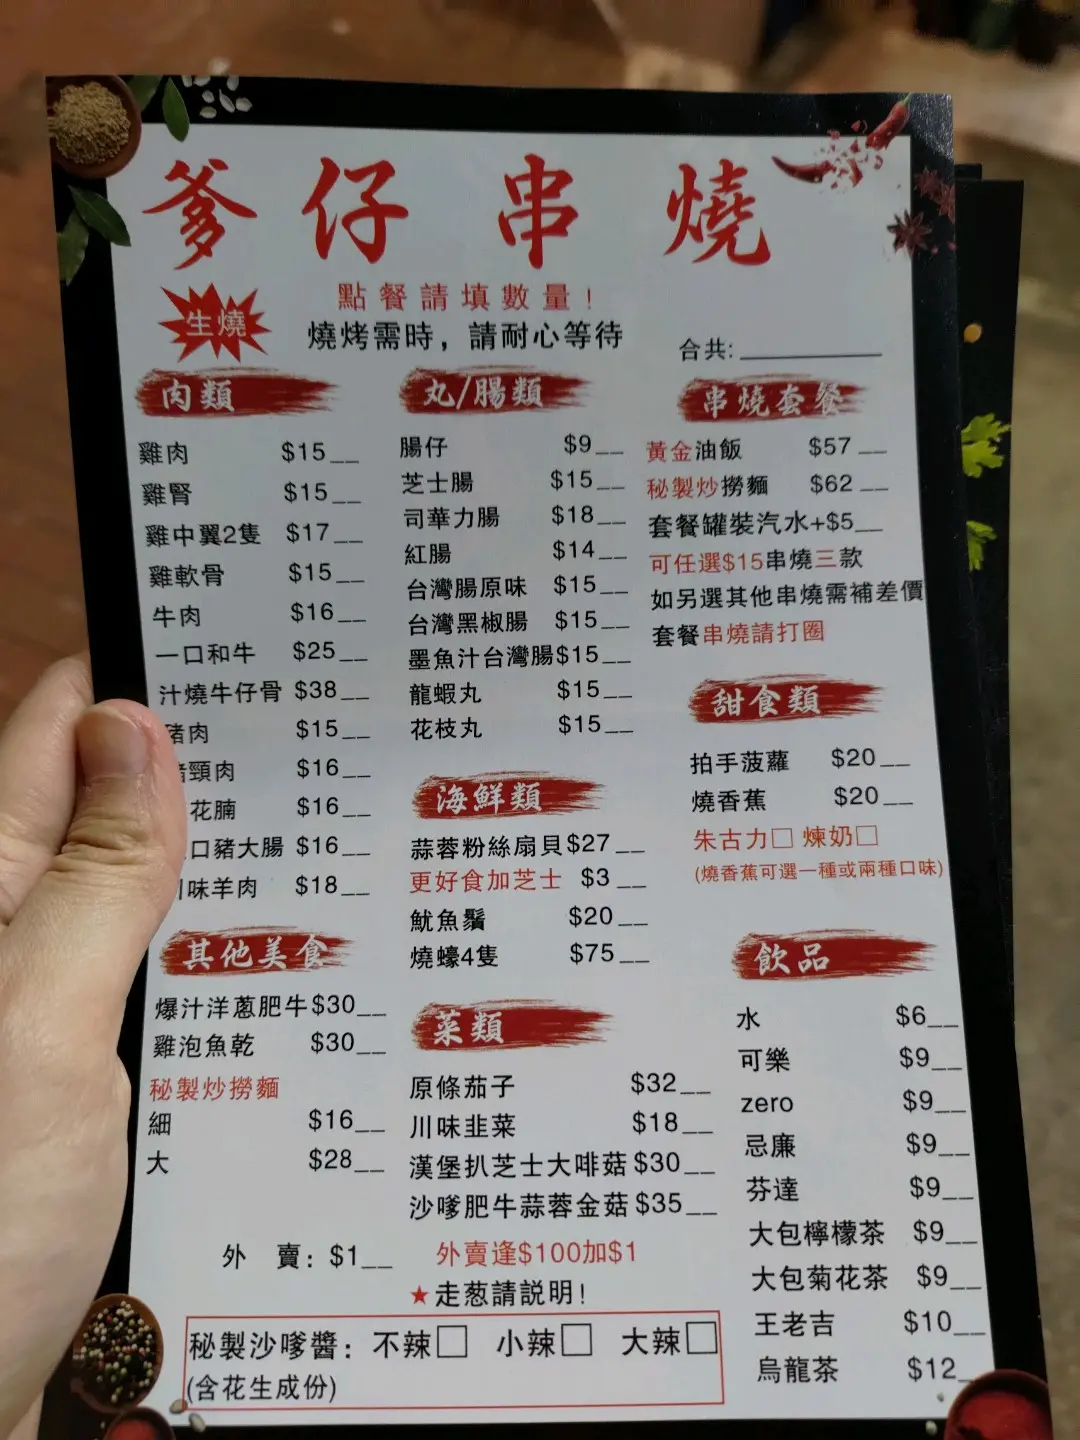 爹仔串燒
生燒
點餐請填數量！
燒烤需時，請耐心等待
合共:
肉類
雞肉 $15__
雞腎 $15__
雞中翼2隻 $17__
雞軟骨 $15__
牛肉 $16__
一口和牛 $25__
汁燒牛仔骨 $38__
豬肉 $15__
豬頸肉 $16__
花腩 $16__
口豬大腸 $16__
川味羊肉 $18__
其他美食
爆汁洋蔥肥牛$30__
雞泡魚乾 $30__
秘製炒撈麵
細 $16__
大 $28__
丸/腸類
腸仔 $9__
芝士腸 $15__
司華力腸 $18__
紅腸 $14__
台灣腸原味 $15__
台灣黑椒腸 $15__
墨魚汁台灣腸$15__
龍蝦丸 $15__
花枝丸 $15__
海鮮類
蒜蓉粉絲扇貝$27__
更好食加芝士 $3__
魷魚鬚 $20__
燒蠔4隻 $75__
菜類
原條茄子 $32__
川味韭菜 $18__
漢堡扒芝士大啡菇$30__
沙嗲肥牛蒜蓉金菇$35__
串燒套餐
黃金油飯 $57__
秘製炒撈麵 $62__
套餐罐裝汽水+$5__
可任選$15串燒三款
如另選其他串燒需補差價
套餐串燒請打圈
甜食類
拍手菠蘿 $20__
燒香蕉 $20__
朱古力□ 煉奶□
(燒香蕉可選一種或兩種口味)
飲品
水 $6__
可樂 $9__
zero $9__
忌廉 $9__
芬達 $9__
大包檸檬茶 $9__
大包菊花茶 $9__
王老吉 $10__
烏龍茶 $12_
外 賣：$1__ 外賣逢$100加$1
★走葱請説明！
秘製沙嗲醬：不辣□ 小辣□ 大辣□
(含花生成份)